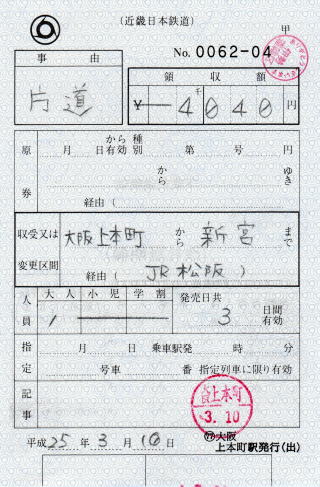 (近畿日本鉄道)
甲
No. 0062-04
事由
領収額
片道
¥ 4千040円
原券
月 日から有効 種別 第 号
から ゆき
経由(
収受又は変更区間
大阪上本町 から 新宮 まで
経由( JR松阪 )
人員
大人 小児 学割
1
発売日共
3 日間有効
指定
月 日 乗車駅発 時 分
号車 番 指定列車に限り有効
記事
上本町
3.10
平成25年3月10日
大阪
上本町駅発行(出)